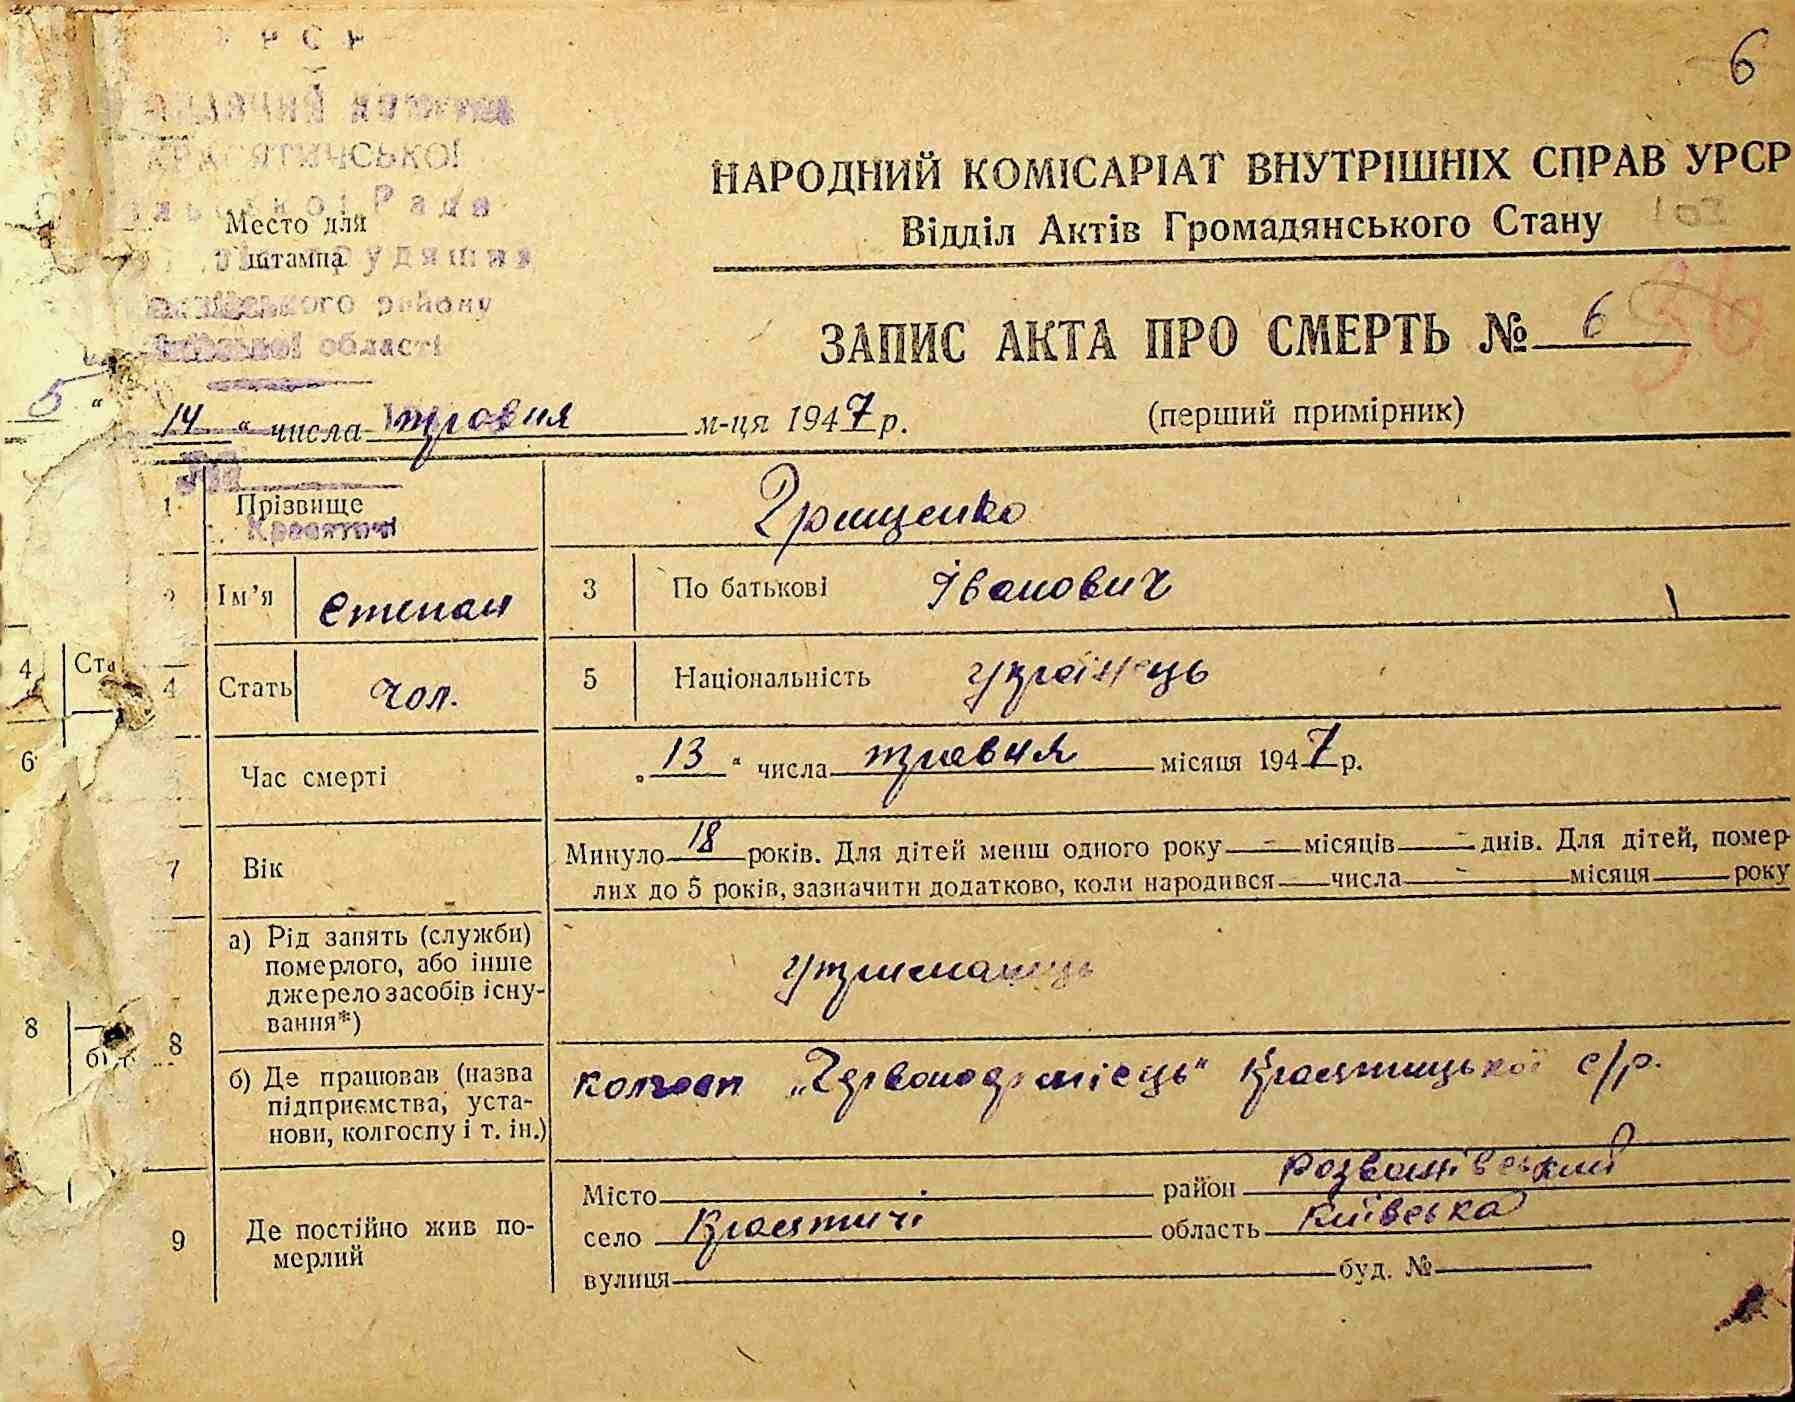 6
УРСР
КРАСЯТИЧСЬКОЇ
Рада
Место для
штампа
району
області
НАРОДНИЙ КОМІСАРІАТ ВНУТРІШНІХ СПРАВ УРСР
Відділ Актів Громадянського Стану
ЗАПИС АКТА ПРО СМЕРТЬ № 6
5 "
14 " числа травня м-ця 1947 р.
(перший примірник)
1 Прізвище Грищенко
Красятичі
2 Ім'я Степан 3 По батькові Іванович
4 Ста
4 Стать чол. 5 Національність українець
6
Час смерті „ 13 " числа травня місяця 1947 р.
7 Вік Минуло 18 років. Для дітей менш одного року - місяців - днів. Для дітей, помер-
лих до 5 років, зазначити додатково, коли народився числа - місяця року
а) Рід занять (служби)
померлого, або інше
джерело засобів існу-
вання*)
утриманець
8
8
б) Де працював (назва
підприємства, уста-
нови, колгоспу і т. ін.)
колгосп Красятицької с/р.
9 Де постійно жив по-
мерлий
Місто район Розважівський
село Красятичі область Київська
вулиця буд. №